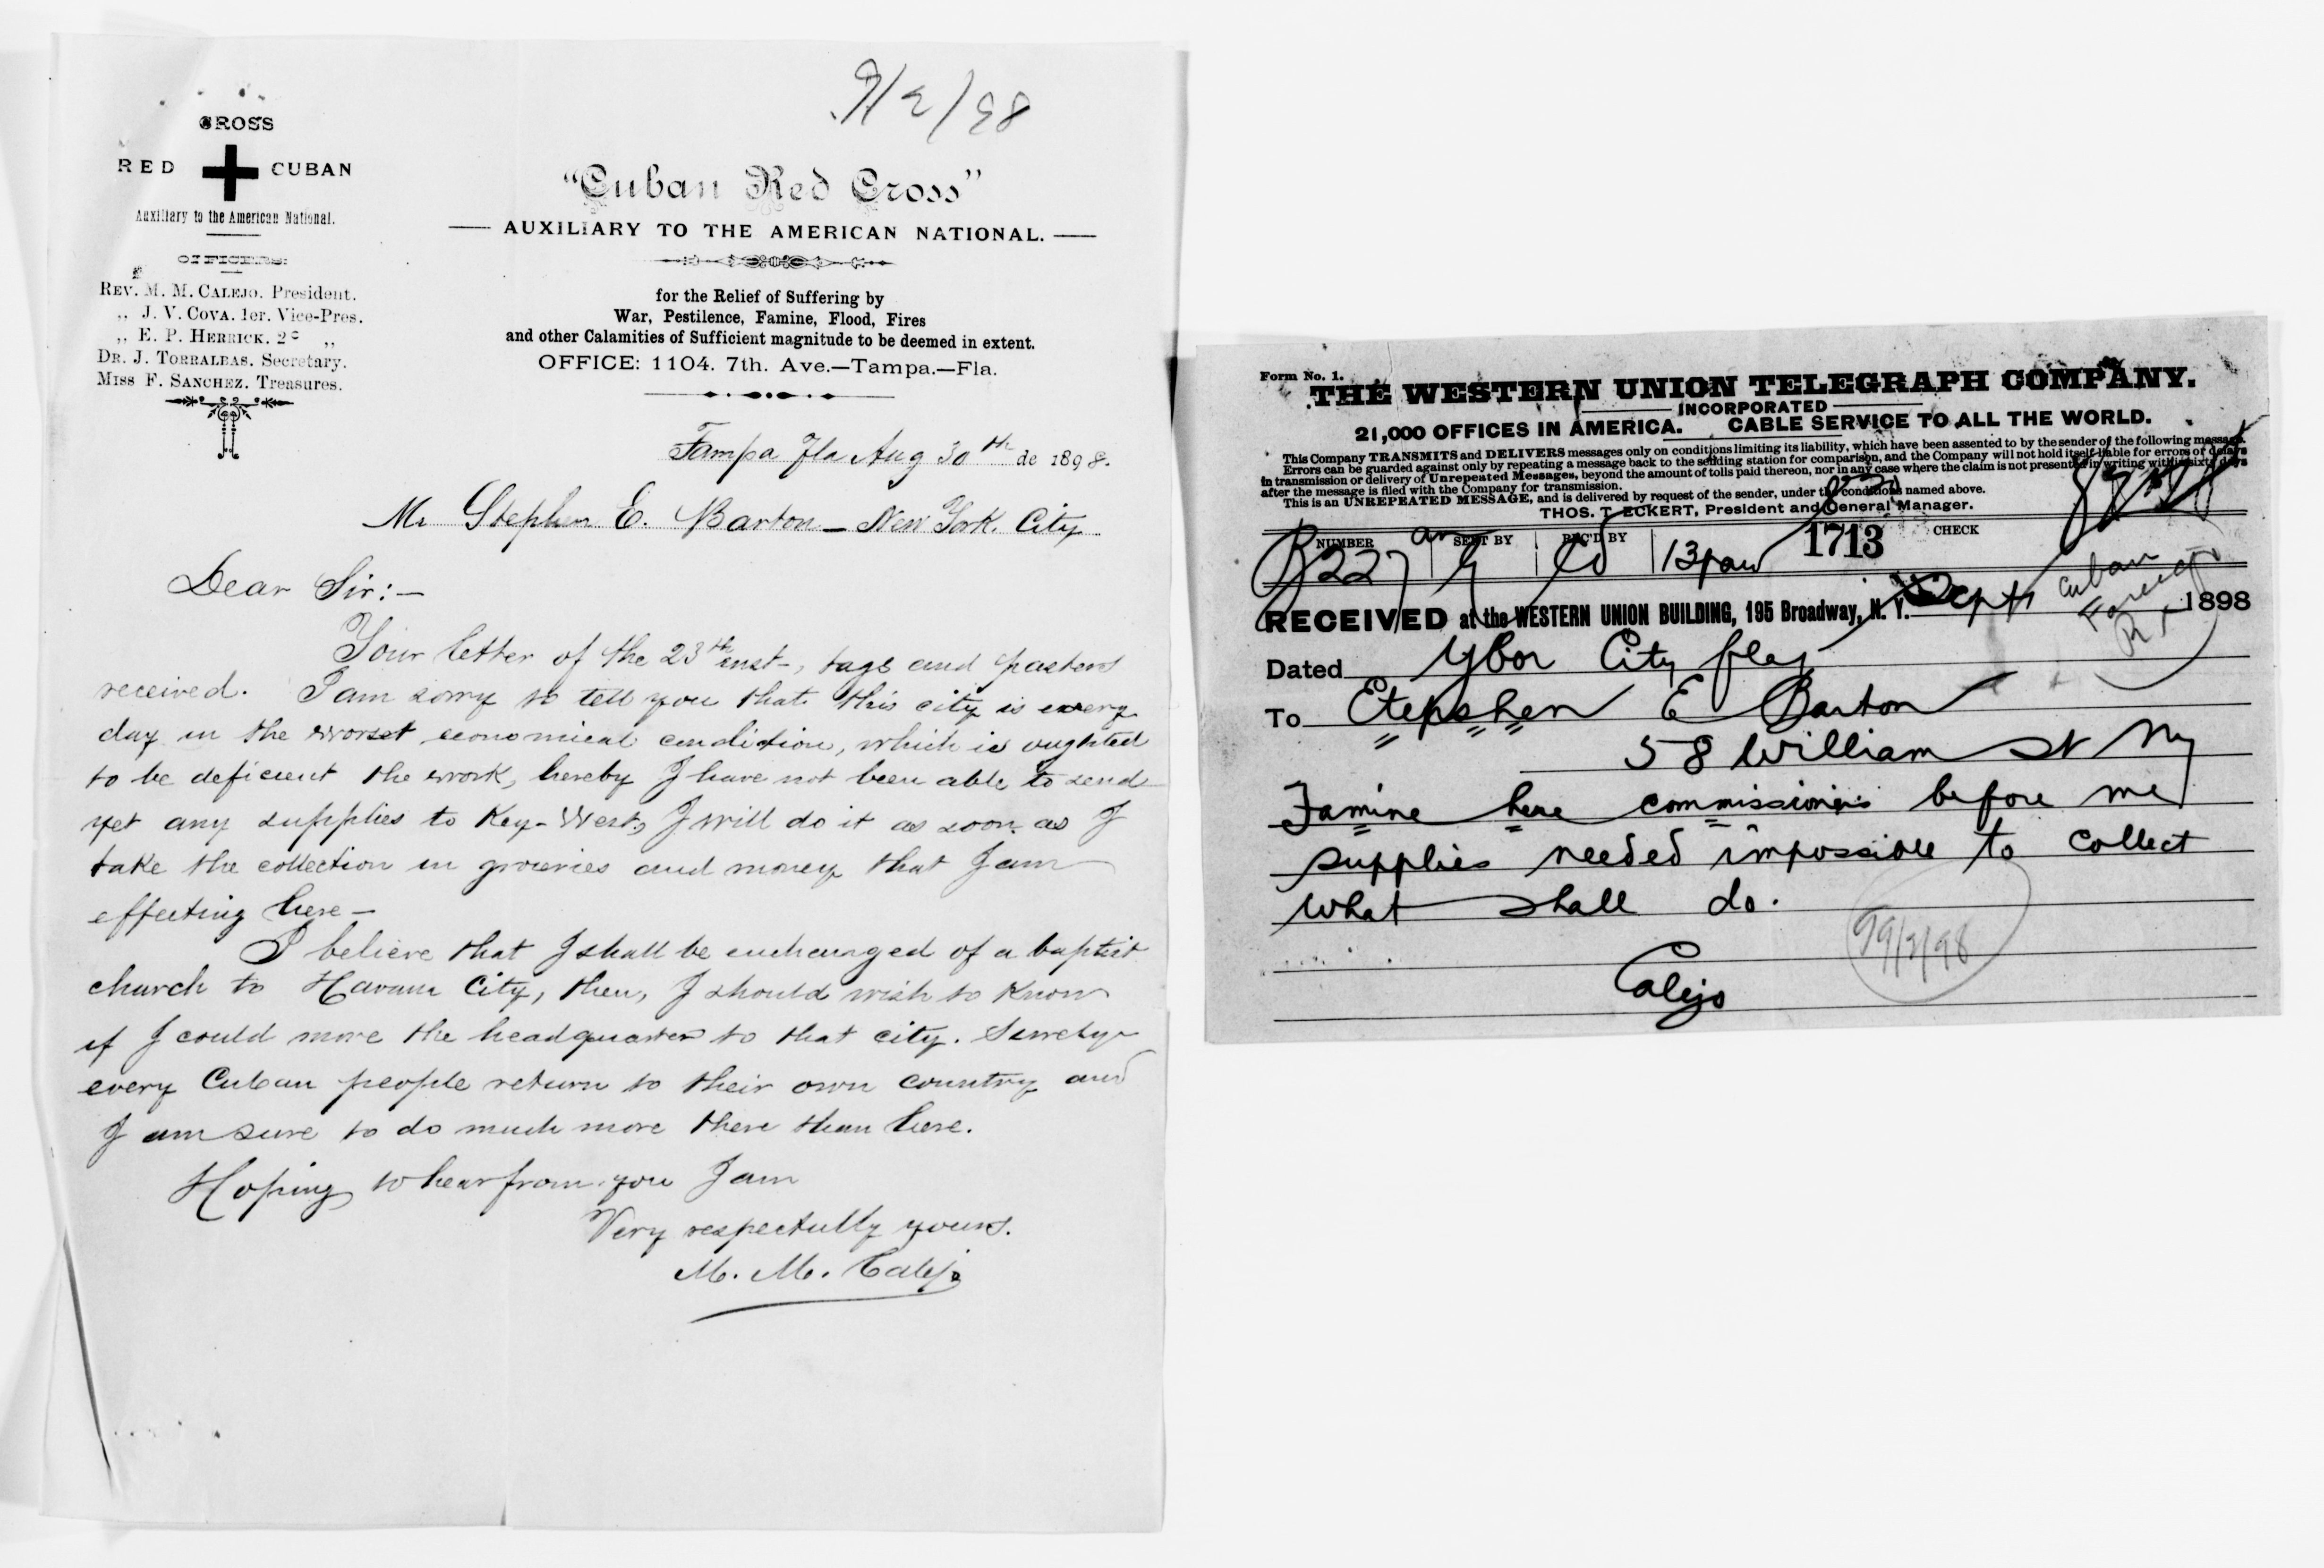 9/2/98
CROSS
RED CUBAN
Auxiliary to the American National.
OFFICERS:
REV. M. M. CALEJO. President.
,, J. V. COVA. 1er. Vice-Pres.
,, E. P. HERRICK. 2º ,,
DR. J. TORRALBAS. Secretary.
MISS F. SANCHEZ. Treasures.
"Cuban Red Cross"
AUXILIARY TO THE AMERICAN NATIONAL.
for the Relief of Suffering by
War, Pestilence, Famine, Flood, Fires
and other Calamities of Sufficient magnitude to be deemed in extent.
OFFICE: 1104. 7th. Ave.—Tampa.—Fla.
Tampa Fla Aug 30th de 1898.
Mr Stephen E. Barton – New York. City
Dear Sir:—
Your letter of the 23th inst–, tags and pasters
received. I am sorry to tell you that this city is every
day in the worset economical condition, which is oughted
to be deficient the work, hereby I have not been able to send
yet any supplies to Key-West, I will do it as soon as I
take the collection in groceries and money that I am
effecting here –
I believe that I shall be encharged of a baptist
church to Havana City, then, I should wish to know
if I could move the headquarter to that city. Surely
every Cuban people return to their own country and
I am sure to do much more there than here.
Hoping to hear from you I am
Very respectfully yours.
M. M. Calejo
Form No. 1.
THE WESTERN UNION TELEGRAPH COMPANY.
INCORPORATED
21,000 OFFICES IN AMERICA. CABLE SERVICE TO ALL THE WORLD.
This Company TRANSMITS and DELIVERS messages only on conditions limiting its liability, which have been assented to by the sender of the following message.
Errors can be guarded against only by repeating a message back to the sending station for comparison, and the Company will not hold itself liable for errors or delays
in transmission or delivery of Unrepeated Messages, beyond the amount of tolls paid thereon, nor in any case where the claim is not presented in writing within sixty days
after the message is filed with the Company for transmission.
This is an UNREPEATED MESSAGE, and is delivered by request of the sender, under the conditions named above.
THOS. T. ECKERT, President and General Manager.
NUMBER SENT BY REC'D BY CHECK
227 13 paid 1713
RECEIVED at the WESTERN UNION BUILDING, 195 Broadway, N. Y. Sept 1 1898
Cuban
Dated Ybor City fla
To Etepshen E Barton
58 William St Ny
Famine here commissioners before me
supplies needed impossible to collect
what shall do.
Calejo
9/2/98